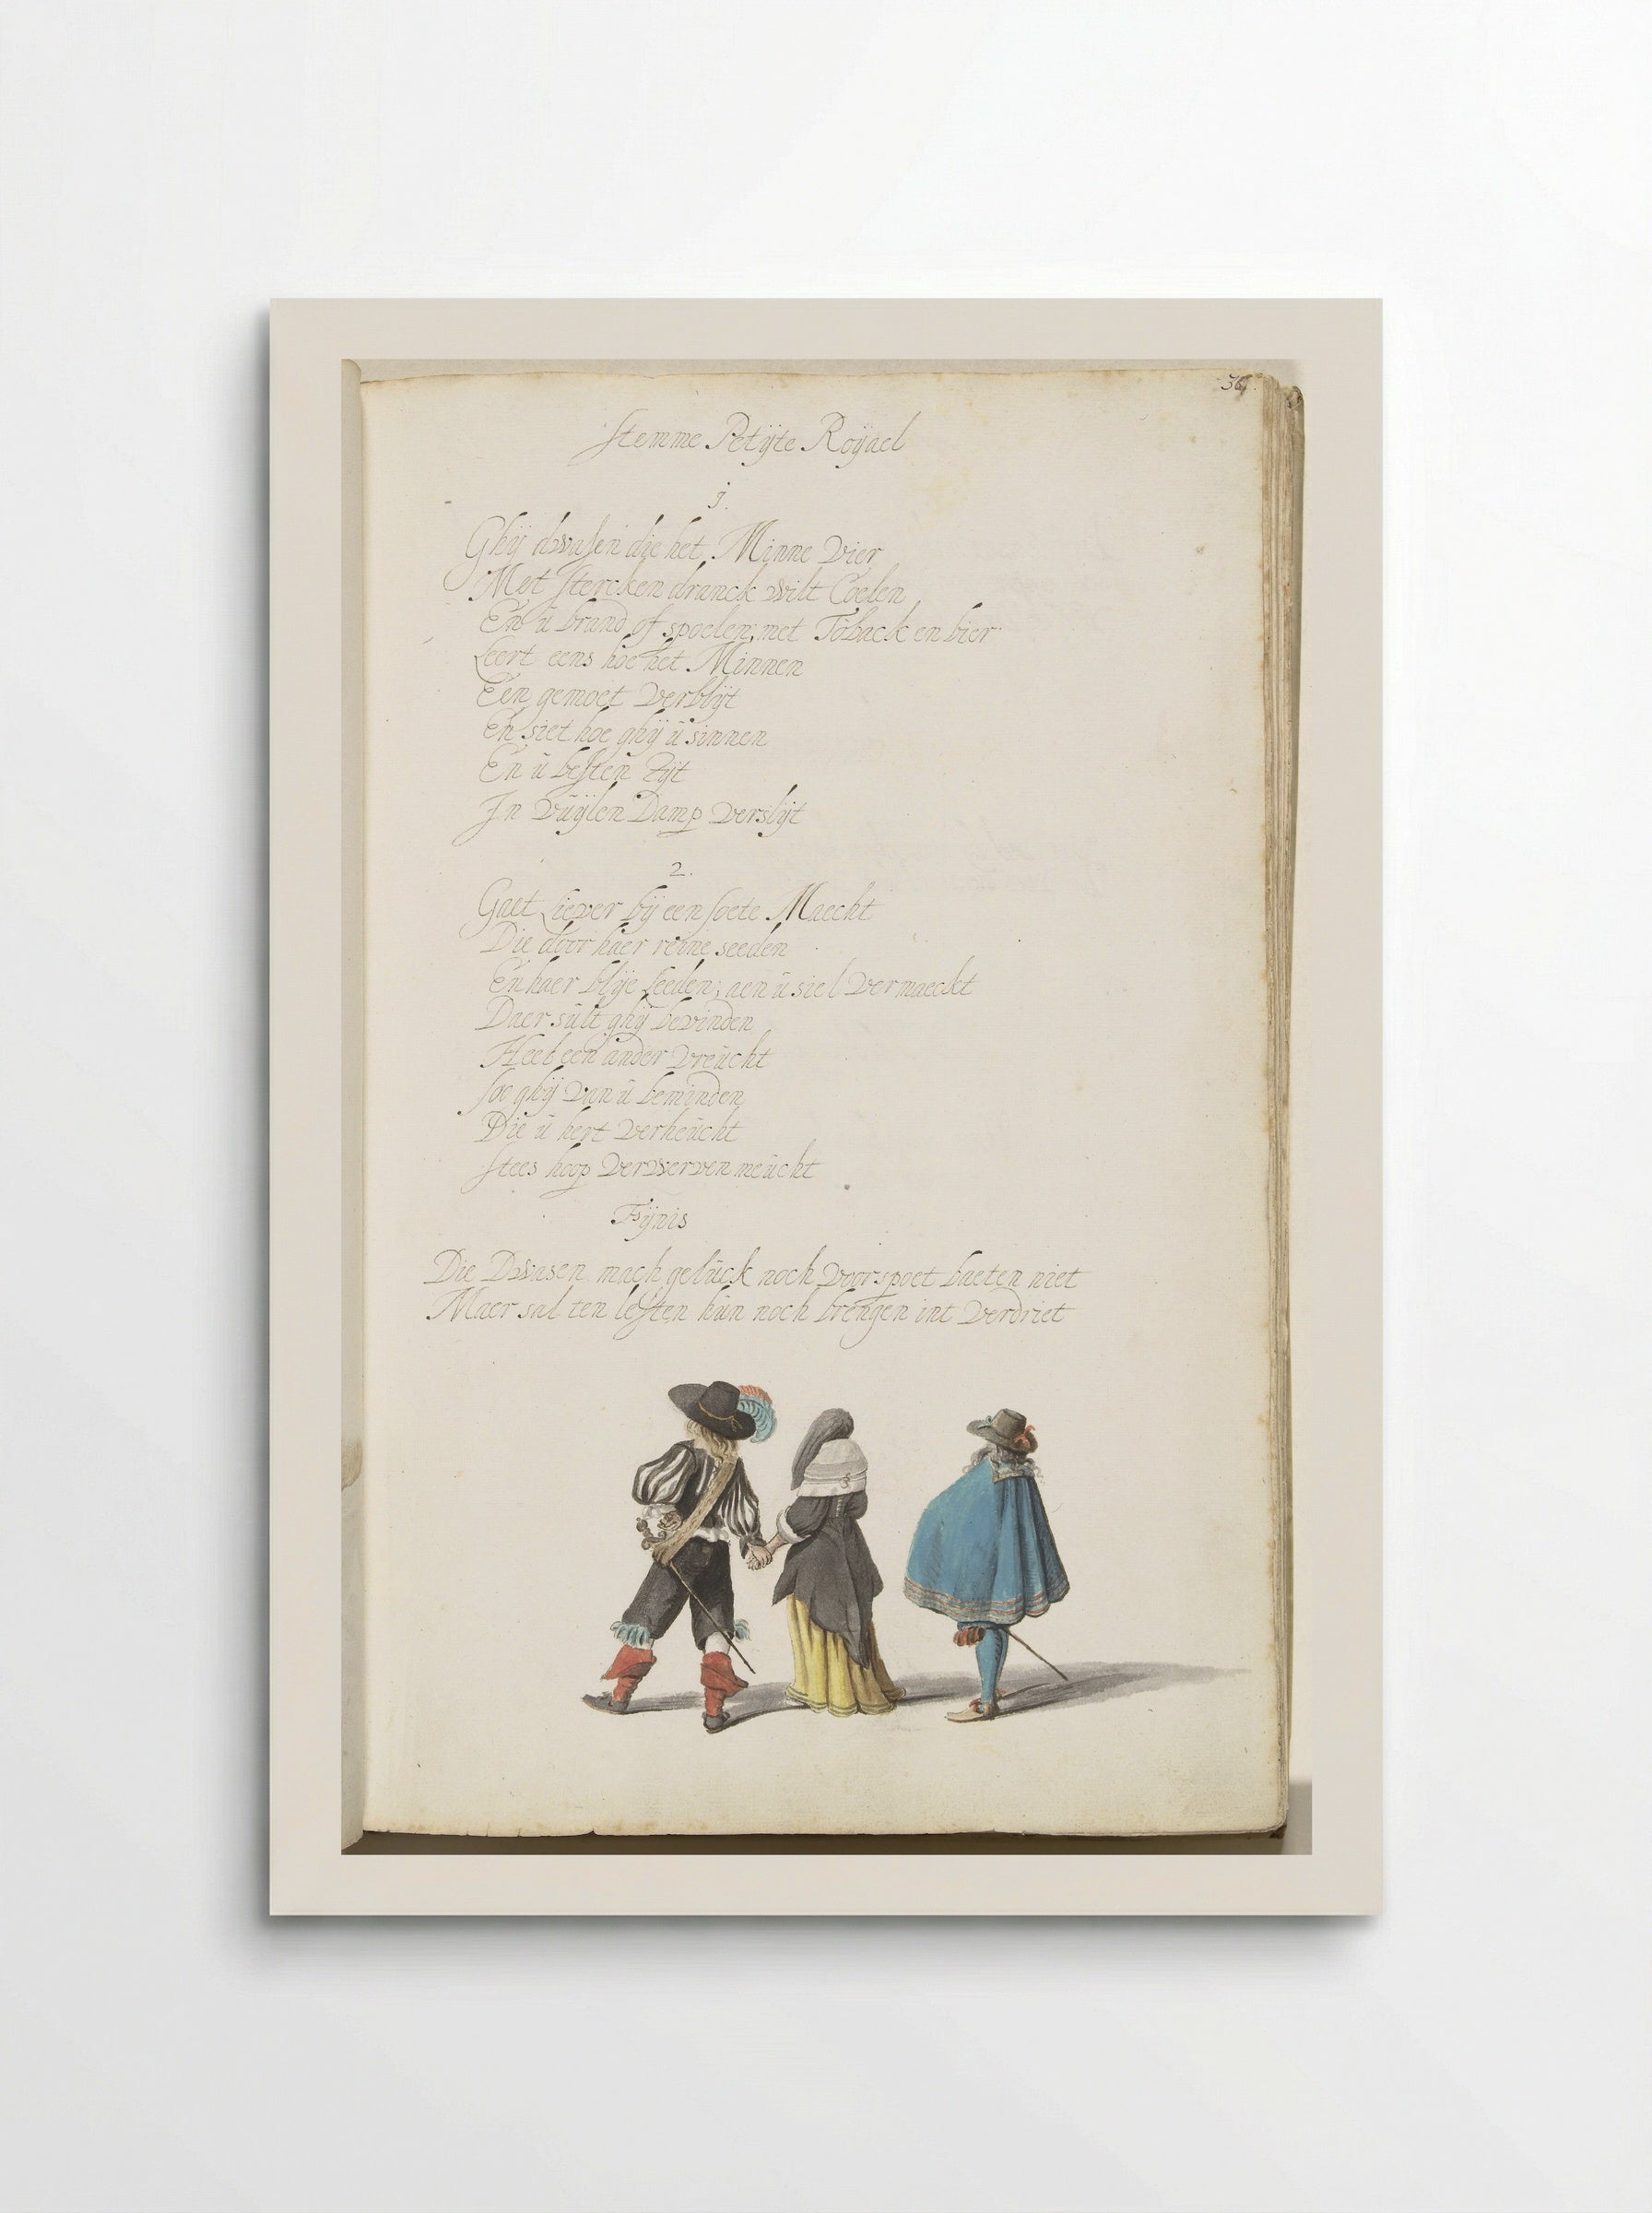 36
Stemme Petÿte Roÿael
1.
Ghÿ dwasen die het Minne Vier
Met stercken dranck wilt Coelen
En ü brand of spoelen, met Toback en bier
Leert eens hoe het Minnen
Een gemoet Verblÿt
En siet hoe ghÿ ü sinnen
En ü besten Zÿt
In Vüÿlen Damp Verslÿt
2.
Gaet Liever bÿ een soete Maecht
Die door haer reine seeden
En haer blÿe Leeden, aen ü siel Vermaeckt
Daer sült ghÿ bevinden
Heel een ander Vreücht
soo ghÿ Van ü beminden
Die ü hert Verheücht
stees hoop Verwerven meücht
Fÿnis
Die Dwasen mach gelück noch Voorspoet baeten niet
Maer sal ten lesten hün noch brengen int Verdriet